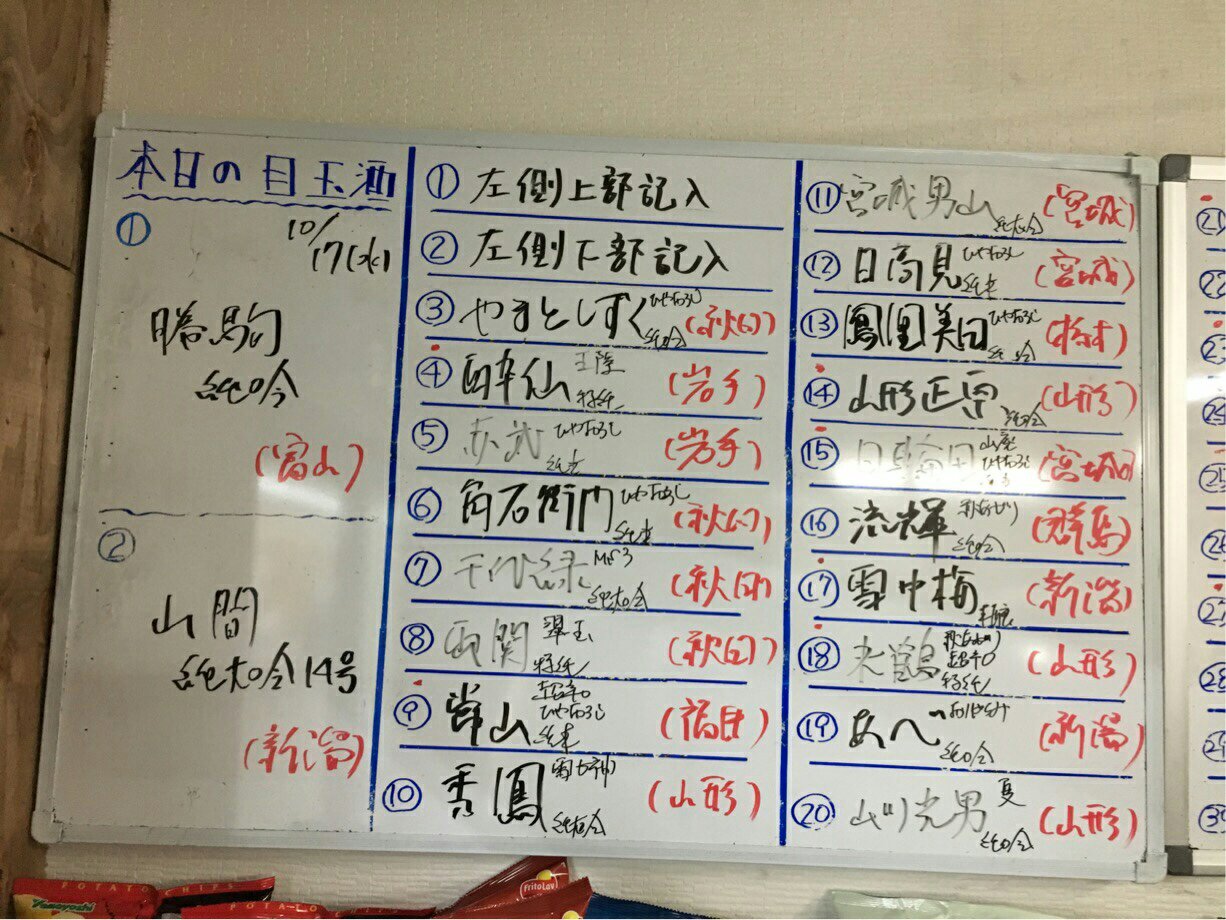 本日の目玉酒
①
10/17(水)
勝駒
純吟
(富山)
②
山間
純大吟14号
(新潟)
① 左側上部記入
② 左側下部記入
③ やまとしずく ひやおろし 純吟 (秋田)
④ 酔仙 特純 (岩手)
⑤ 赤武 ひやおろし 純米 (岩手)
⑥ 角右衛門 ひやおろし 純米 (秋田)
⑦ 千代緑 純大吟 (秋田)
⑧ 両関 翠玉 特純 (秋田)
⑨ 峯山 超辛口 ひやおろし 純米 (福井)
⑩ 秀鳳 雪女神 純大吟 (山形)
⑪ 宮城男山 純大吟 (宮城)
⑫ 日高見 ひやおろし 純米 (宮城)
⑬ 鳳凰美田 ひやおろし 純吟 (栃木)
⑭ 山形正宗 純吟 (山形)
⑮ 山廃 ひやおろし (宮城)
⑯ 流輝 秋あがり 純吟 (群馬)
⑰ 雪中梅 本醸 (新潟)
⑱ 米鶴 秋あがり 超辛口 特純 (山形)
⑲ あべ 純吟 (新潟)
⑳ 山川光男 夏 純吟 (山形)
21
22
23
24
25
26
27
28
29
30
POTATO CHIPS
Yamayoshi
FritoLay